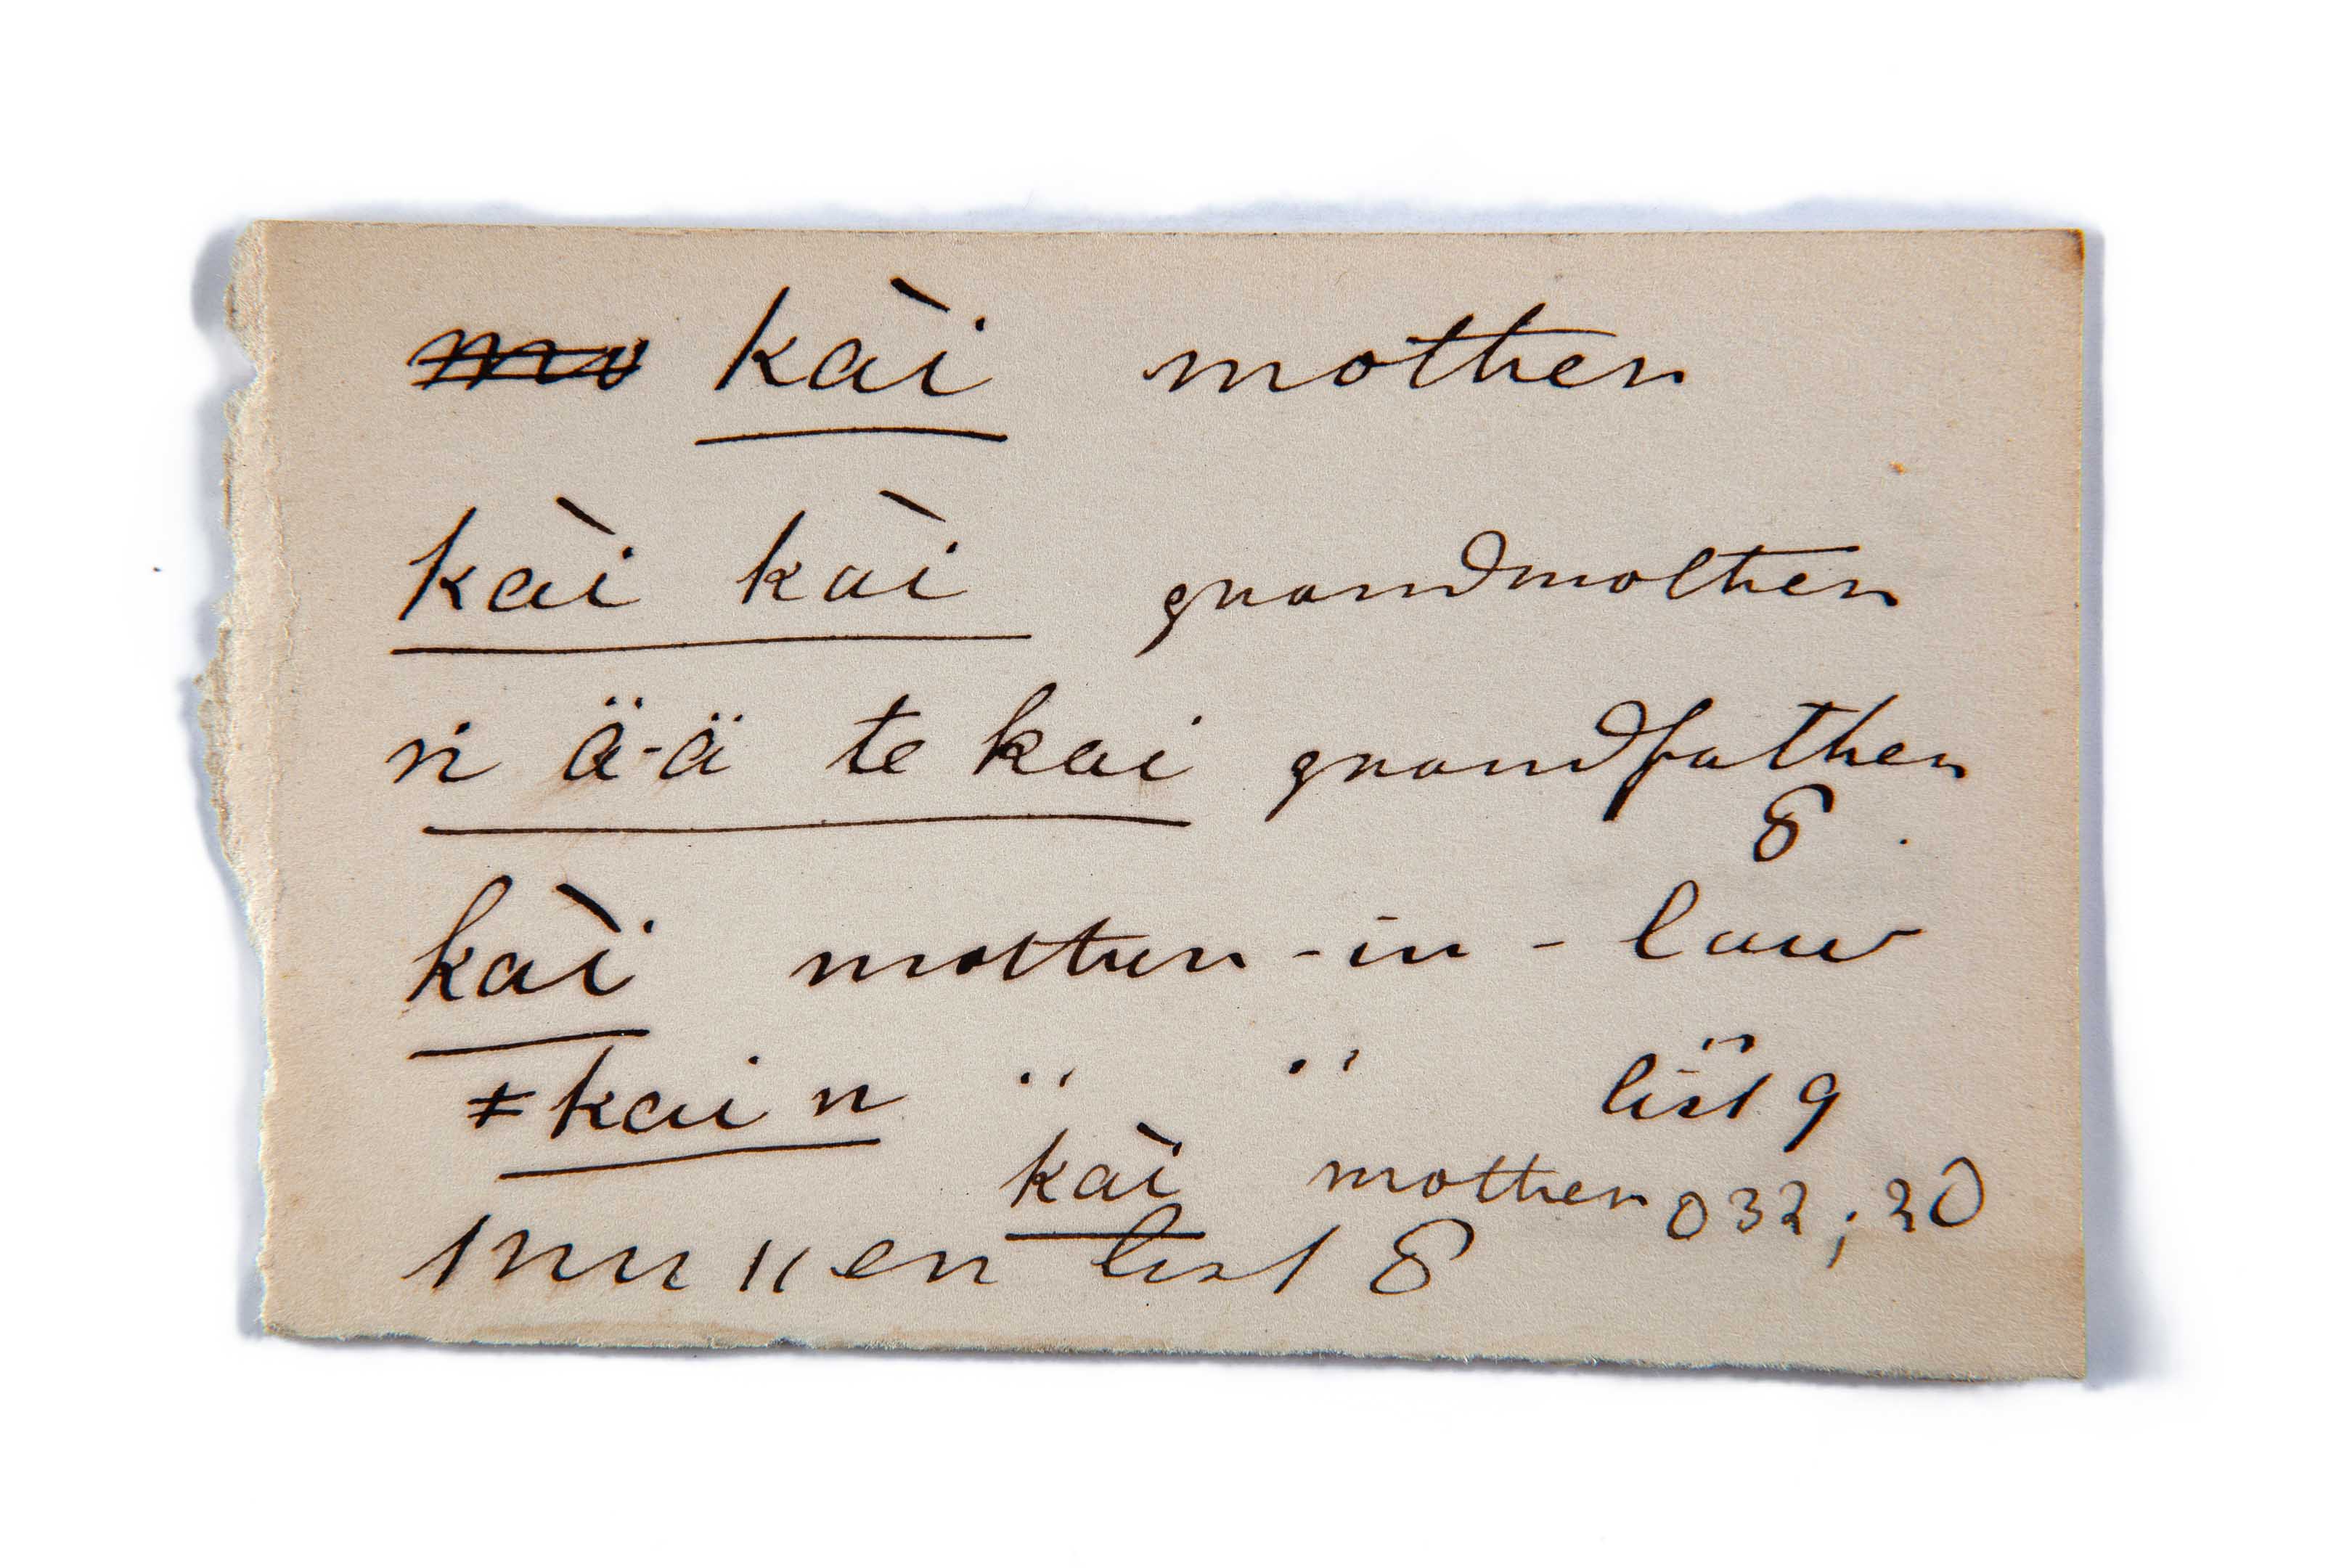 kài mother
kài kài grandmother
ń ä-ä te kai grandfather
8
kài mother-in-law
≠kai n " " list 9
kài mother 032; 20
list 8